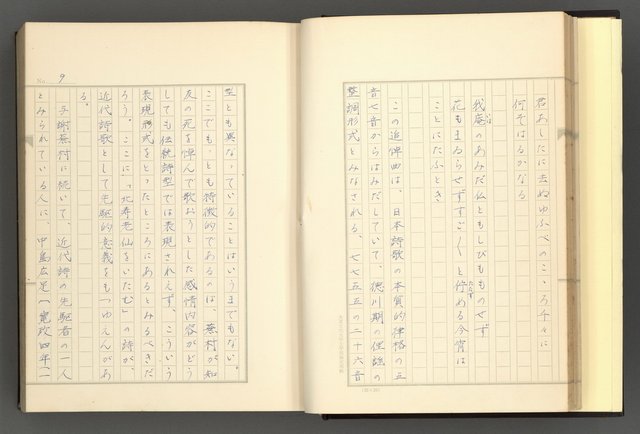 君あしたに去ぬゆふべのこゝろ千々に
何ぞはるかなる
我庵のあみだ仏ともしびもものせず
花もまゐらせずすごすごと彳める今宵は
ことにたふとき
この追悼曲は、日本詩歌の本質的律格の五
音七音からはみだしていて、徳川期の俚謡の
整調形式とみなされる、七七五五の二十六音
No. 9
型とも異なっていることはいうまでもない。
ここでもっとも特徴的であるのは、蕪村が知
友の死を悼んで歌おうとした感情内容がどう
しても伝統詩型では表現されえず、こういう
表現形式をとったところにあるとみるべきだ
ろう。ここに「北寿老仙をいたむ」の詩が、
近代詩歌として先駆的意義をもつゆえんがあ
る。
与謝蕪村に続いて、近代詩の先駆者の一人
とみられている人に、中島広足(寛政四年(一